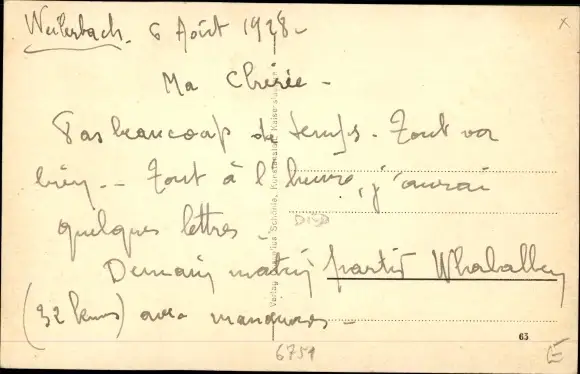 Weilerbach. 6 Août 1928 -
Ma Chérie -
Pas beaucoup de temps. Tout va
bien -- Tout à l'heure, j'aurai
quelques lettres.
Demain matin partir
(32 kms) avec manœuvres -
Kunstanstalt, Kaiserslautern
Verlag
63
6751